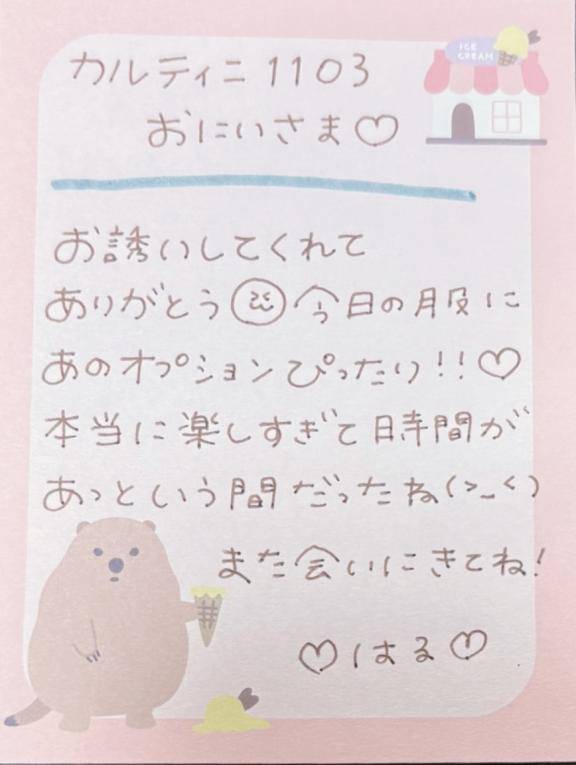 ICE
CREAM
カルティニ1103
おにいさま♡
お誘いしてくれて
ありがとう 今日の服に
あのオプションぴったり!!♡
本当に楽しすぎて時間が
あっという間だったね(>_<)
また会いにきてね!
♡はる♡